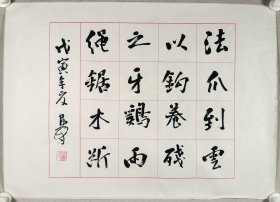 法爪到雲
以鈎養殘
之牙鷄雨
绳鋸木断
戊寅年夏